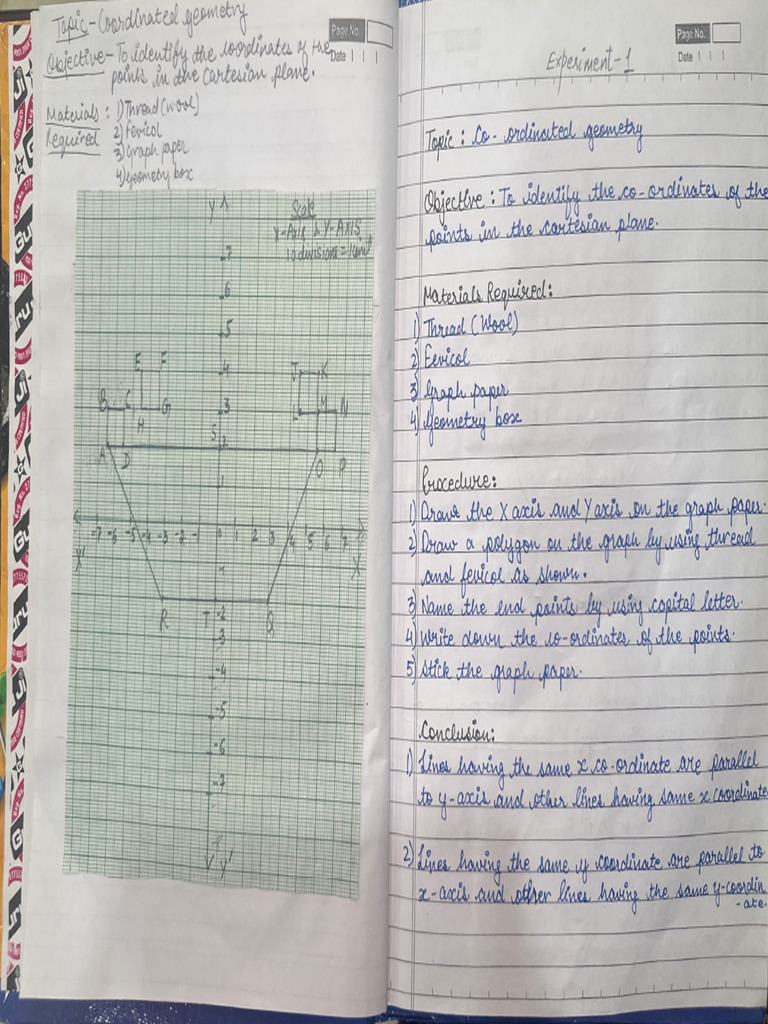 Topic - Coordinated geometry
Page No.
Date
Objective - To identify the coordinates of the
points in the cartesian plane.
Materials : 1) Thread (wool)
Required 2) Fevicol
3) Graph paper
4) geometry box
Y
Scale
X-Axis & Y-AXIS
10 division = 1 unit
7
6
5
E F 4 J K
B C G 3 L M N
H S
A D 2 O P
1
-7 -6 -5 -4 -3 -2 -1 0 1 2 3 4 5 6 7
X' X
R T -2 Q
-3
-4
-5
-6
-7
Y'
Page No.
Date
Experiment-1
Topic : Co-ordinated geometry
Objective : To identify the co-ordinates of the
points in the cartesian plane.
Materials Required:
1) Thread (Wool)
2) Fevicol
3) Graph paper
4) Geometry box
Procedure:
1) Draw the X axis and Y axis on the graph paper.
2) Draw a polygon on the graph by using thread
and fevicol as shown.
3) Name the end points by using capital letter.
4) Write down the co-ordinates of the points.
5) Stick the graph paper.
Conclusion:
1) Lines having the same x co-ordinate are parallel
to y-axis and other lines having same x coordinate
2) Lines having the same y coordinate are parallel to
x-axis and other lines having the same y-coordin
-ate.